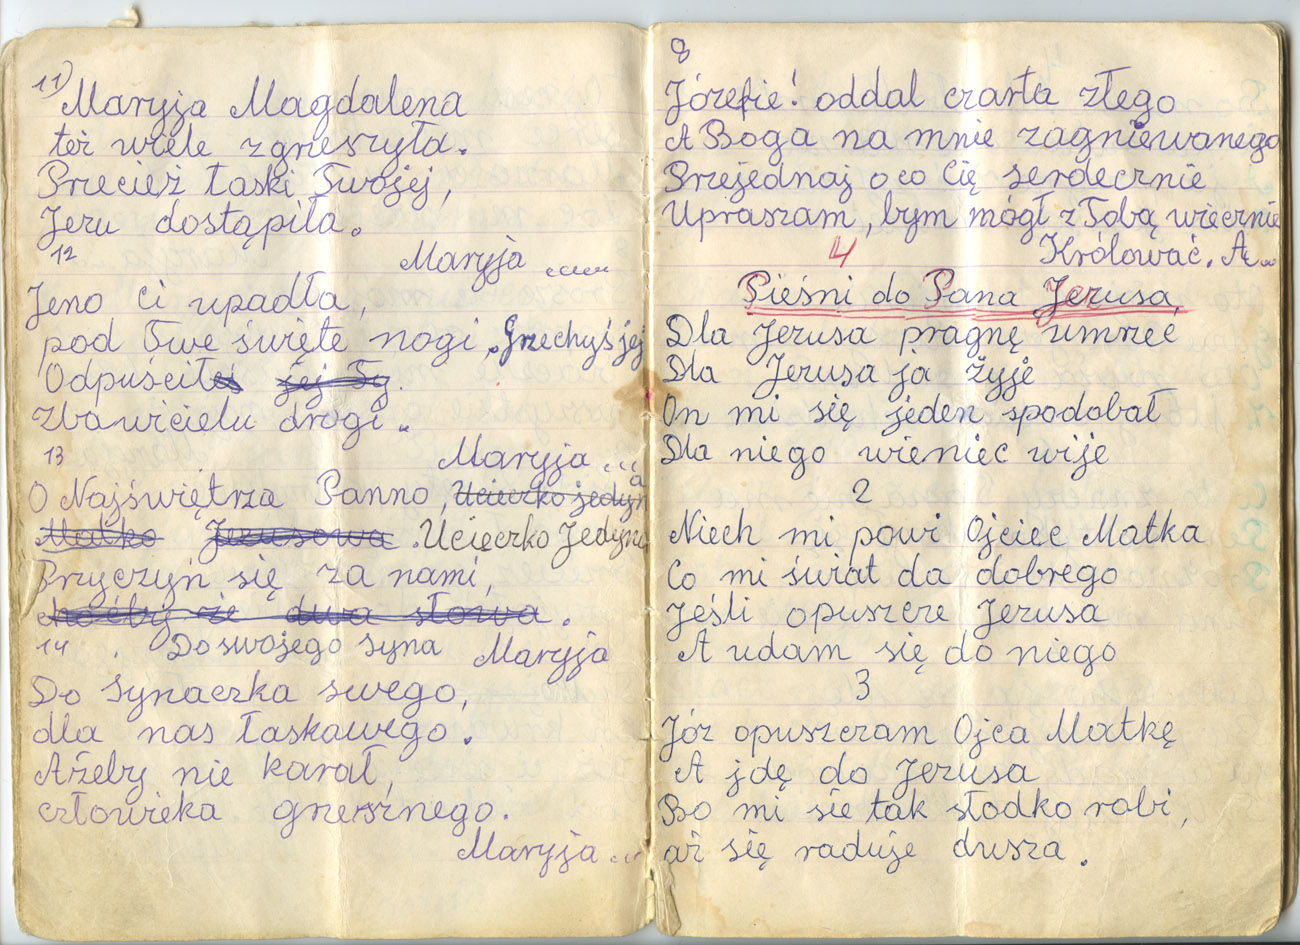 11)
Maryja Magdalena
też wiele zgrzeszyła.
Przecież łaski Twojej,
Jezu dostąpiła.
12 Maryja ......
Jeno Ci upadła,
pod Twe święte nogi, Grzechyś jej
Odpuściłeś jej Ty.
Zbawicielu drogi.
13 Maryja ...
O Najświętrza Panno, Ucieczko jedyna
Matko Jezusowa. Ucieczko Jedyna
Przyczyń się za nami,
choćby że dwa słowa.
14 . Do swojego syna Maryja
Do Synaczka swego,
dla nas łaskawego.
Ażeby nie karał,
człowieka grzesznego.
Maryja ...
8
Józefie! oddal czarta złego
A Boga na mnie zagniewanego
Przejednaj o co Cię serdecznie
Upraszam, bym mógł z Tobą wiecznie
Królować. A...
4
Pieśni do Pana Jezusa
Dla Jezusa pragnę umrzeć
Dla Jezusa ja żyję
On mi się jeden spodobał
Dla niego wieniec wije
2
Niech mi powi Ojciec Matka
Co mi świat da dobrego
Jeśli opuszcze Jezusa
A udam się do niego
3
Józ opuszczam Ojca Matkę
A jdę do Jezusa
Bo mi sie tak słodko robi,
aż się raduje dusza.